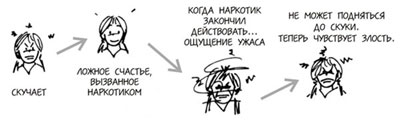 СКУЧАЕТ
ЛОЖНОЕ СЧАСТЬЕ,
ВЫЗВАННОЕ
НАРКОТИКОМ
КОГДА НАРКОТИК
ЗАКОНЧИЛ
ДЕЙСТВОВАТЬ...
ОЩУЩЕНИЕ УЖАСА
НЕ МОЖЕТ ПОДНЯТЬСЯ
ДО СКУКИ.
ТЕПЕРЬ ЧУВСТВУЕТ ЗЛОСТЬ.